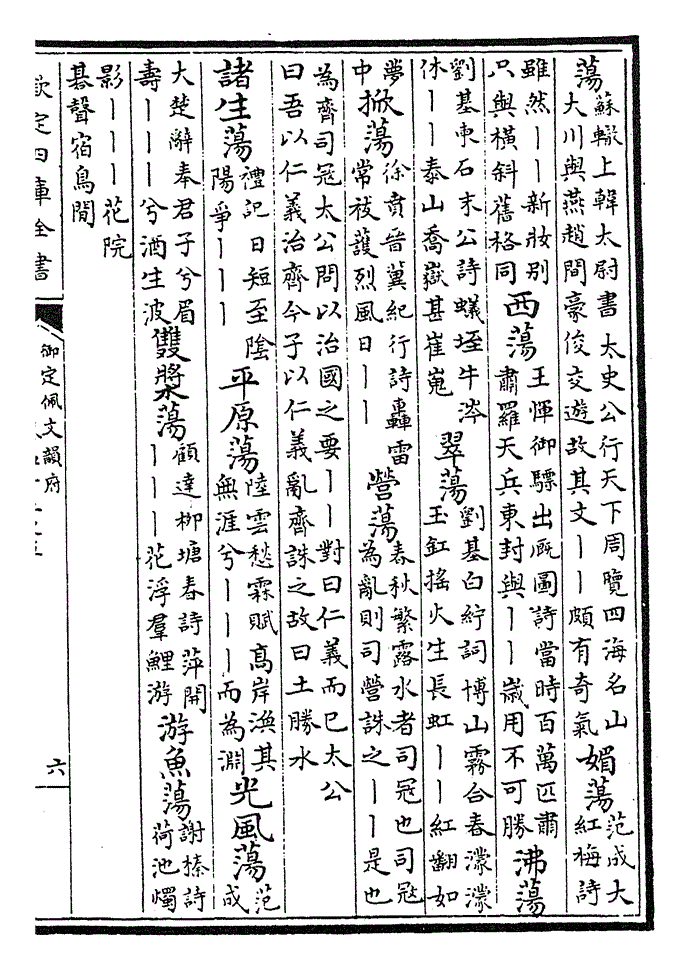 蕩蘇轍上韓太尉書太史公行天下周覽四海名山大川與燕趙間豪俊交遊故其文丨丨頗有奇氣媚蕩范成大紅梅詩
雖然丨丨新妝别只與橫斜舊格同西蕩王惲御驃出厩圖詩當時百萬匹肅肅羅天兵東封與丨丨歲用不可勝沸蕩
劉基柬石末公詩蟻垤牛涔休丨丨泰山喬嶽甚崔嵬翠蕩劉基白紵詞博山霧合春濛濛玉缸搖火生長虹丨丨紅翻如
夢中掀蕩徐賁晉冀紀行詩轟雷常祓護烈風日丨丨營蕩春秋繁露水者司冦也司冦為亂則司營誅之丨丨是也
為齊司冦太公問以治國之要丨丨對曰仁義而已太公曰吾以仁義治齊今子以仁義亂齊誅之故曰土勝水
諸生蕩禮記日短至陰陽爭丨丨丨平原蕩陸雲愁霖賦髙岸渙其無涯兮丨丨丨而為淵光風蕩范成
大楚辭奉君子兮眉壽丨丨丨兮酒生波雙槳蕩顧達柳塘春詩萍開丨丨丨花浮羣鯉游游魚蕩謝榛詩荷池燭
影丨丨丨花院碁聲宿鳥間
欽定四庫全書
御定佩文韻府
六